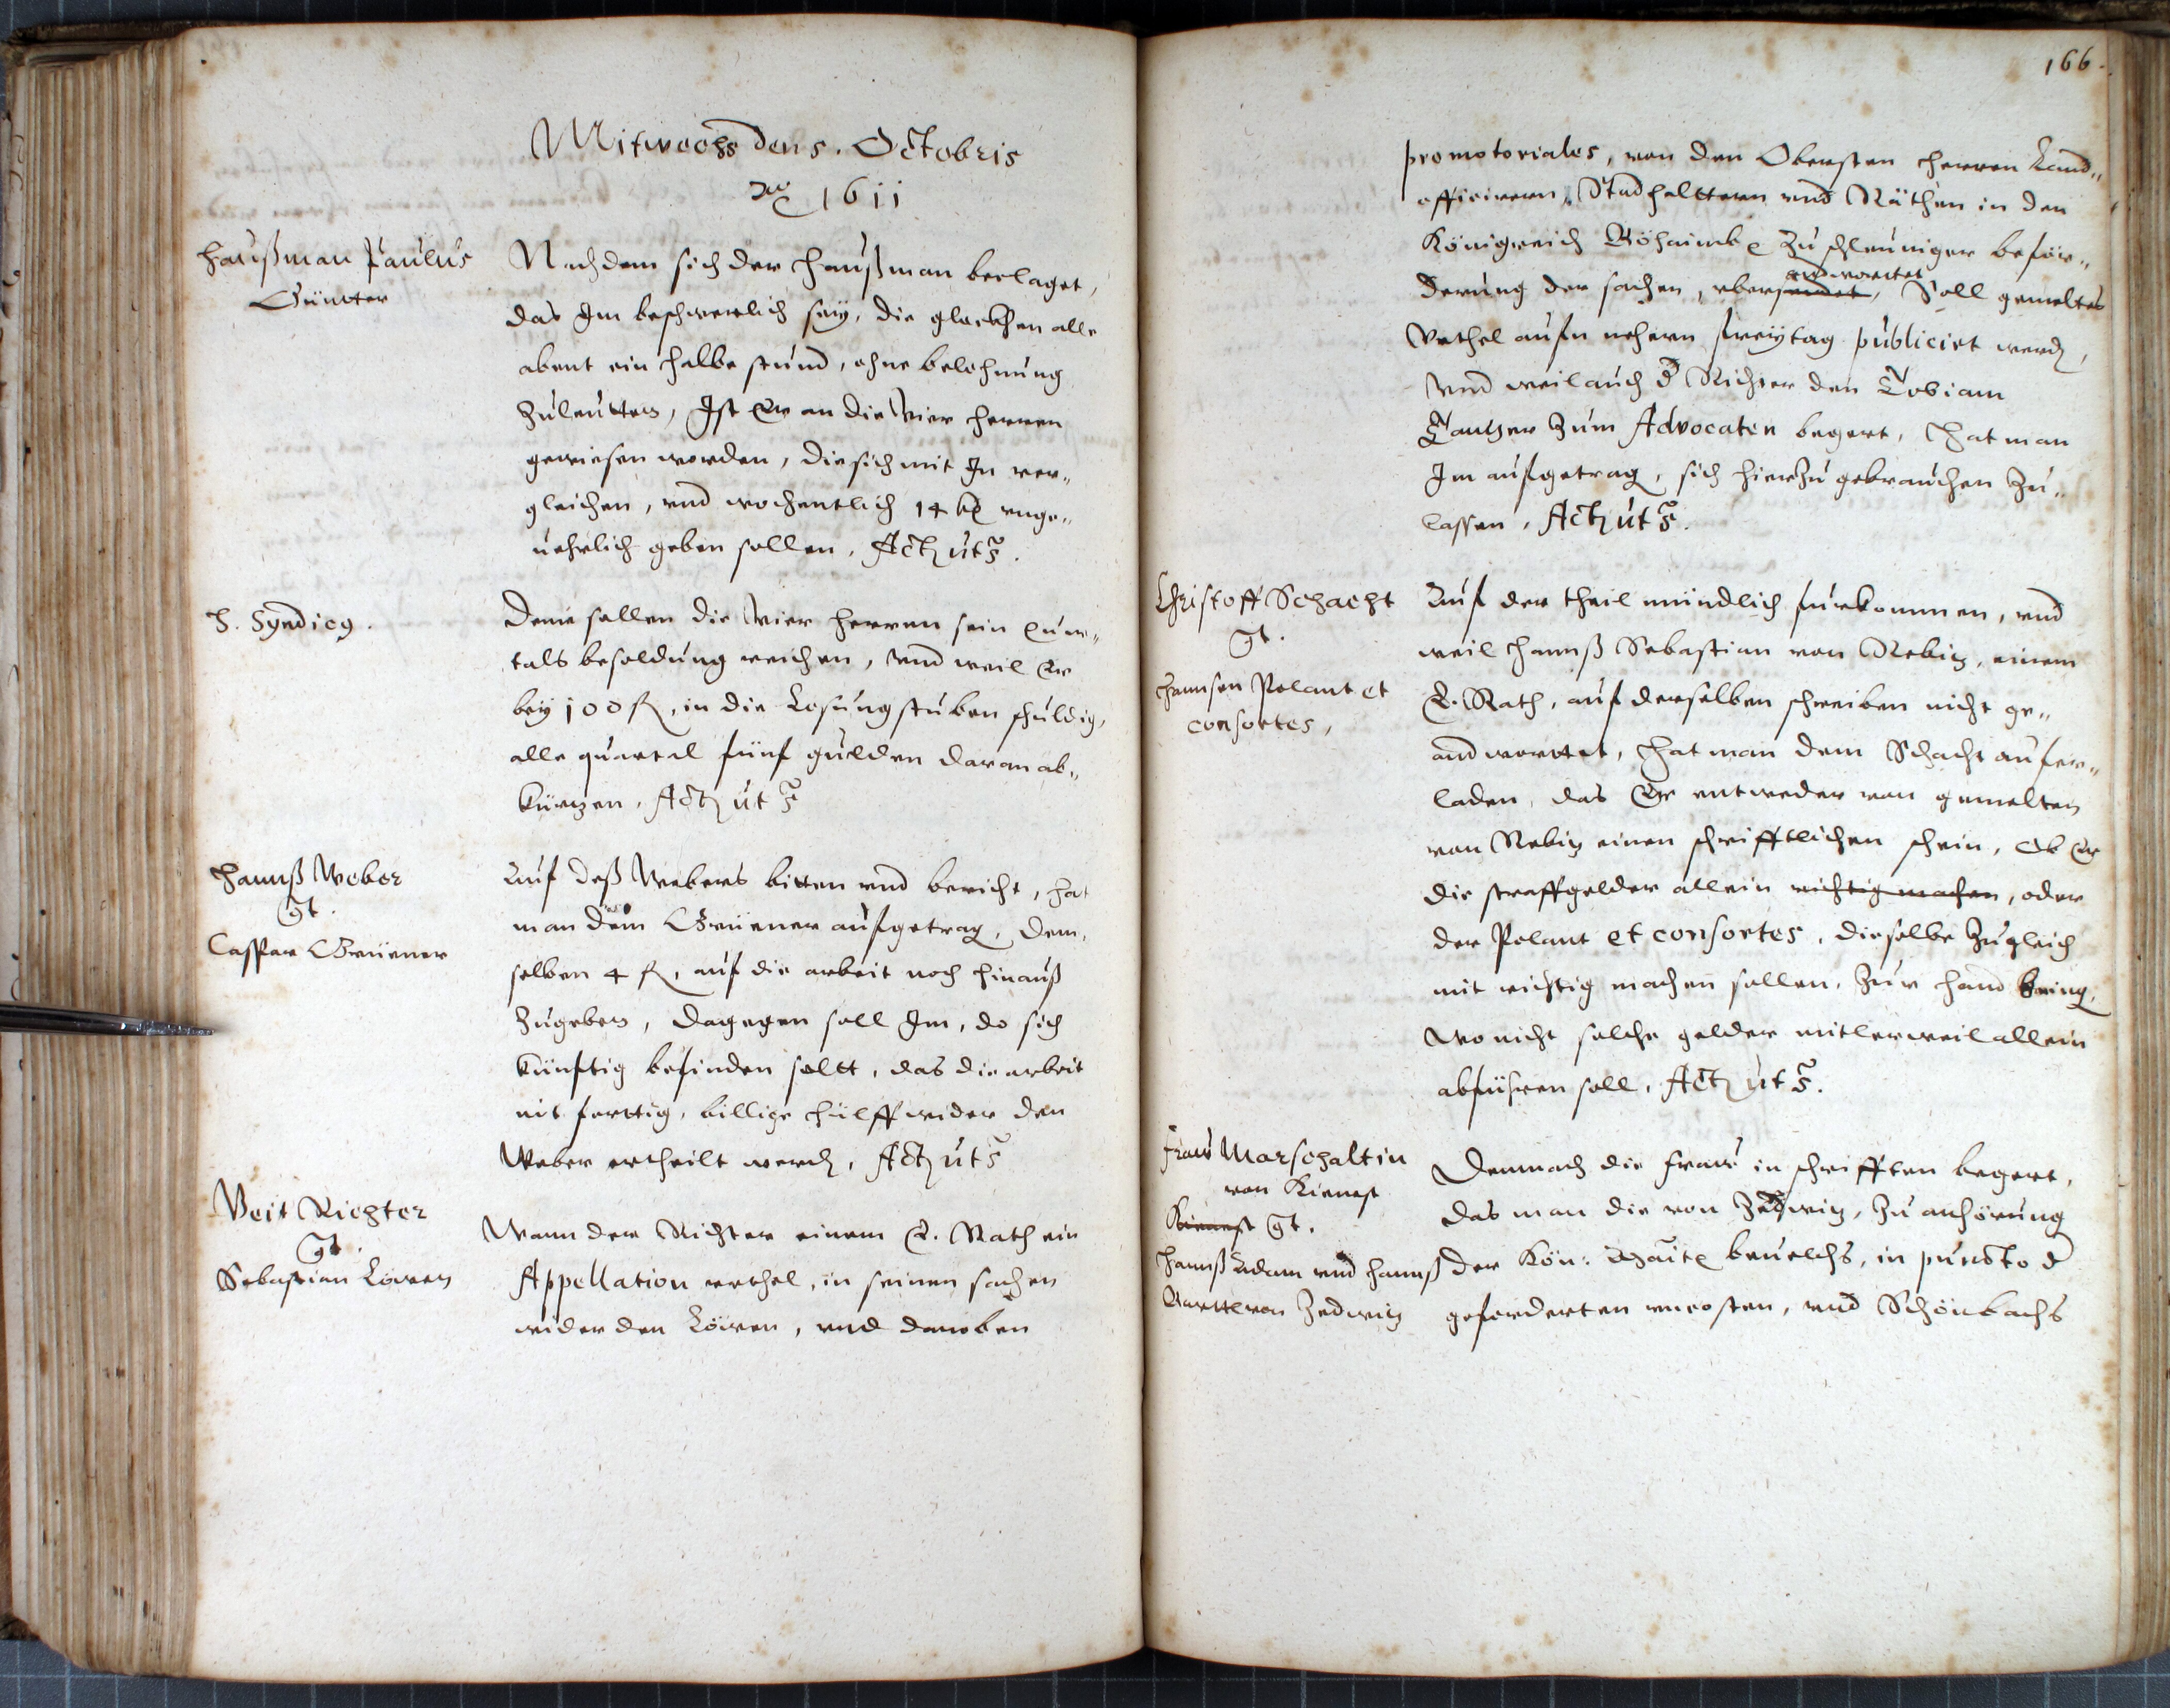 Mitwochs den 5. Octobris
Ao 1611
Haußman Paulus
Günter
Nachdem sich der Haußman beclaget,
das Im beschwerlich sey, die glockhen alle
abent ein halbe stund, ohne belohnung
Zuleutten, Ist Er an die Vier herren
gewiesen worden, die sich mit In ver„
gleichen, und wochentlich 14 kr unge„
uehrlich geben sollen, Act. ut s.
H. Syndicus.
Deme sollen die Vier herren sein quar„
tals besoldung reichen, Und weil Er
bey 100 fl, in die Losungstuben schuldig,
alle quartal fünf gulden daran ab„
kürtzen, Act. ut s
Hannß Weber
Caspar Grüener
Auf deß Webers bitten und bericht, hat
man dem Grüener aufgetragen, dem„
selben 4 fl, auf die arbeit noch hinauß
Zugeben, dagegen soll Im, do sich
künftig befinden soltt, das die arbeit
nit ferttig, billige hülff wider den
Weber ertheilt werden, Act. ut s
Veit Richter
Sebastian Löwen
Wann der Richter einem E. Rath ein
Appellation urthel, in seinen sachen
wider den Löwen, und daneben
166.
promotoriales, von den Obersten herren Land„
officirern, Stadhalttern und Räthen in den
Königreich Böhaimb Zu schleuniger beför„
andwortet
derung der sachen, ubersendet, Soll gemeltes
Urthel aufn nehern freytag publicirt werden,
Und weil auch der Richter den Tobiam
Tantzer zum Advocaten begert, Hat man
Im aufgetragen, sich hierzu gebrauchen Zu„
lassen, Act. ut s.
Christoff Schacht
Hannsen Polant et
consortes,
Auf der theil mündlich fürkommen, und
weil Hannß Sebastian von Rebitz, einem
E. Rath, auf derselben schreiben nicht ge„
andworttet, Hat man dem Schacht auffer„
laden, das Er entweder von gemelten
von Rebitz einen schrifftlichen schein, Ob Er
die straffgelder allein richtig machen, oder
der Polant et consortes, dieselbe Zugleich
mit richtig machen sollen, Zur hand bringen,
Wo nicht solche gelder mitlerweil allein
abführen soll, Act. ut s.
Fraw Marschaltin
von Kienast
Kienast
Hannß Adam und Hannß
von Zedwitz
Demnach die fraw in schrifften begert,
das man die von Zedwitz, Zu anhörung
der Kön: Maitt beuelchs, in puncto der
geforderten uncosten, und Schönbachs